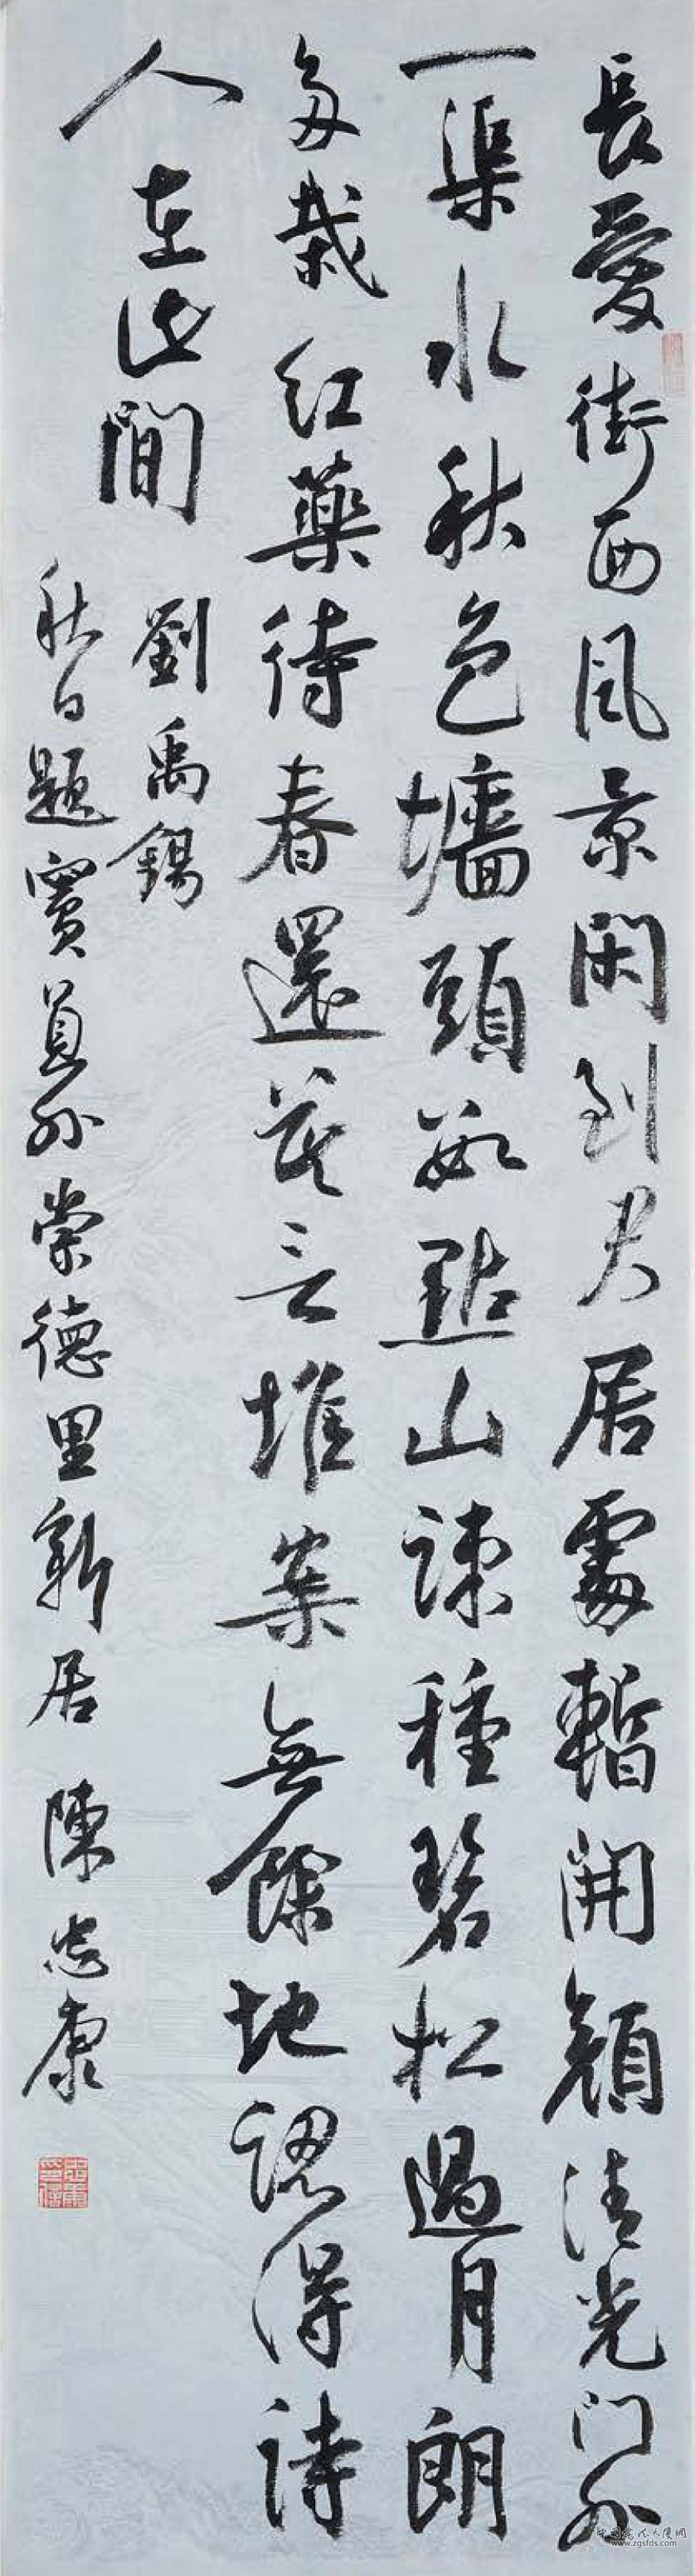 長愛街西風景閑到君居處暫開顏清光門外
一渠水秋色墻頭數點山疎種碧松過月朗
多栽紅藥待春還莫言堆案無餘地認得詩
人在此間 劉禹錫
秋日題竇員外崇德里新居 陳忠康
www.zgsfds.com